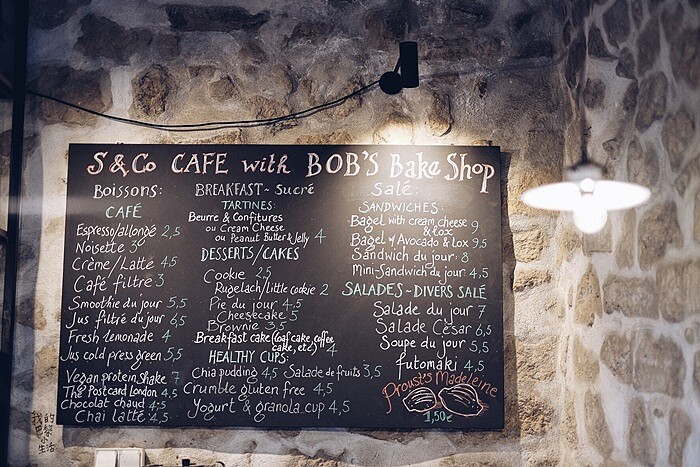 S & Co CAFE with BOB'S Bake Shop
Boissons:
CAFÉ
Espresso/allongé 2,5
Noisette 3
Crème/Latté 4,5
Café filtre 3
Smoothie du jour 5,5
Jus filtré du jour 6,5
Fresh lemonade 4
Jus cold press green 5,5
Vegan protein shake 7
The Postcard London 4,5
Chocolat chaud 4,5
Chai latté 4,5
BREAKFAST ~ Sucré
TARTINES:
Beurre & Confitures
ou Cream Cheese
ou Peanut Butter & Jelly 4
DESSERTS/CAKES
Cookie 2,5
Rugelach/Little cookie 2
Pie du jour 4,5
Cheesecake 5
Brownie 3,5
Breakfast cake (loaf cake, coffee
cake, etc) 4
HEALTHY CUPS:
Chia pudding 4,5 Salade de fruits 3,5
Crumble gluten free 4,5
Yogurt & granola cup 4,5
Salé:
SANDWICHES:
Bagel with cream cheese
& lox 9
Bagel w Avocado & Lox 9,5
Sandwich du jour: 8
Mini-Sandwich du jour 4,5
SALADES ~ DIVERS SALÉ
Salade du jour 7
Salade César 6,5
Soupe du jour 5,5
futomaki 4,5
Proust's Madeleine
1,50€
我的
巴黎
生活